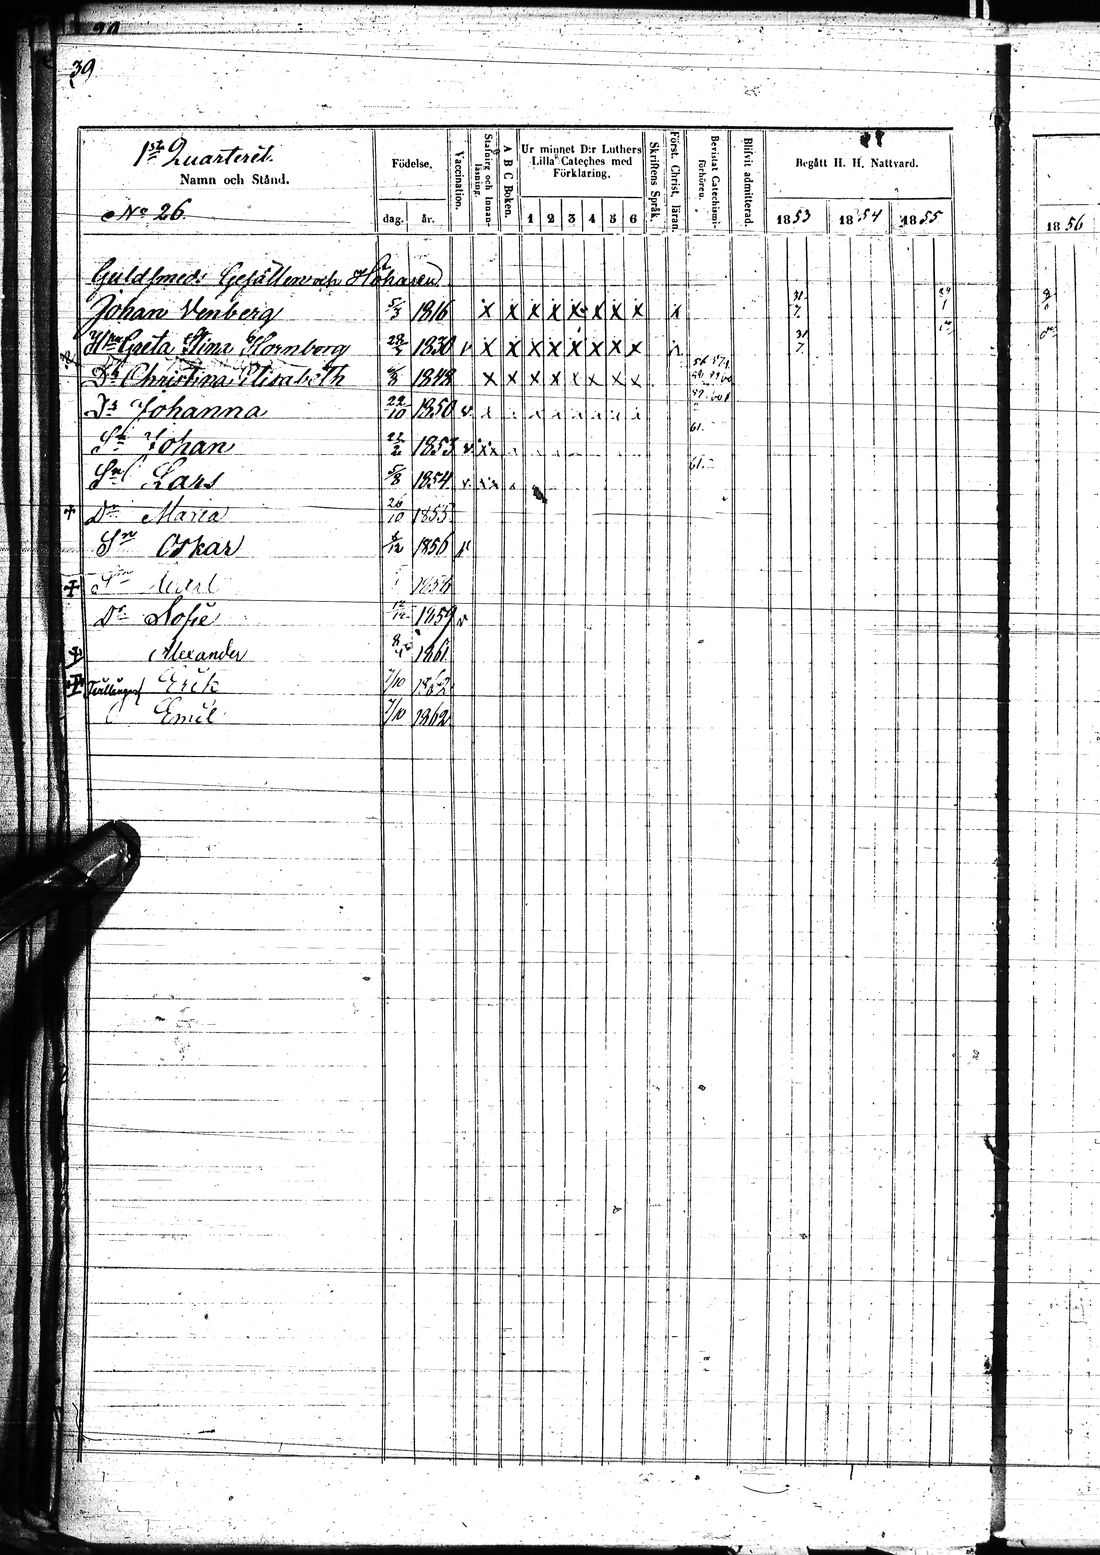 39
1sta Quarteret.
Namn och Stånd.
No 26
Födelse.
dag. år.
Vaccination.
Stafning och Innanläsning.
A B C Boken.
Ur minnet D:r Luthers Lilla Cateches med Förklaring.
1 2 3 4 5 6
Skriftens Språk.
Först. Christ. läran.
Bevistat Catechismiförhören.
Blifvit admitterad.
Begått H. H. Nattvard.
1853 1854 1855
1856
Guldsmeds Gesällen och
Johan Venberg 5/3 1816 x x x x x x x x x
Hu Greta Stina Hornborg 1830 v x x x x x x x x
Dr Christina Elisabeth 1848 x x x x x x x x
Dr Johanna 22/10 1850 v
Sn Johan 1853 v x x
Sn Lars 5/8 1854 v x x
Dr Maria 26/10 1855
Sn Oskar 1856 v
Sn 1856
Dr Sofie 1859 v
Alexander 1861
Tvillingar Erik 7/10 1862
Emil 7/10 1862